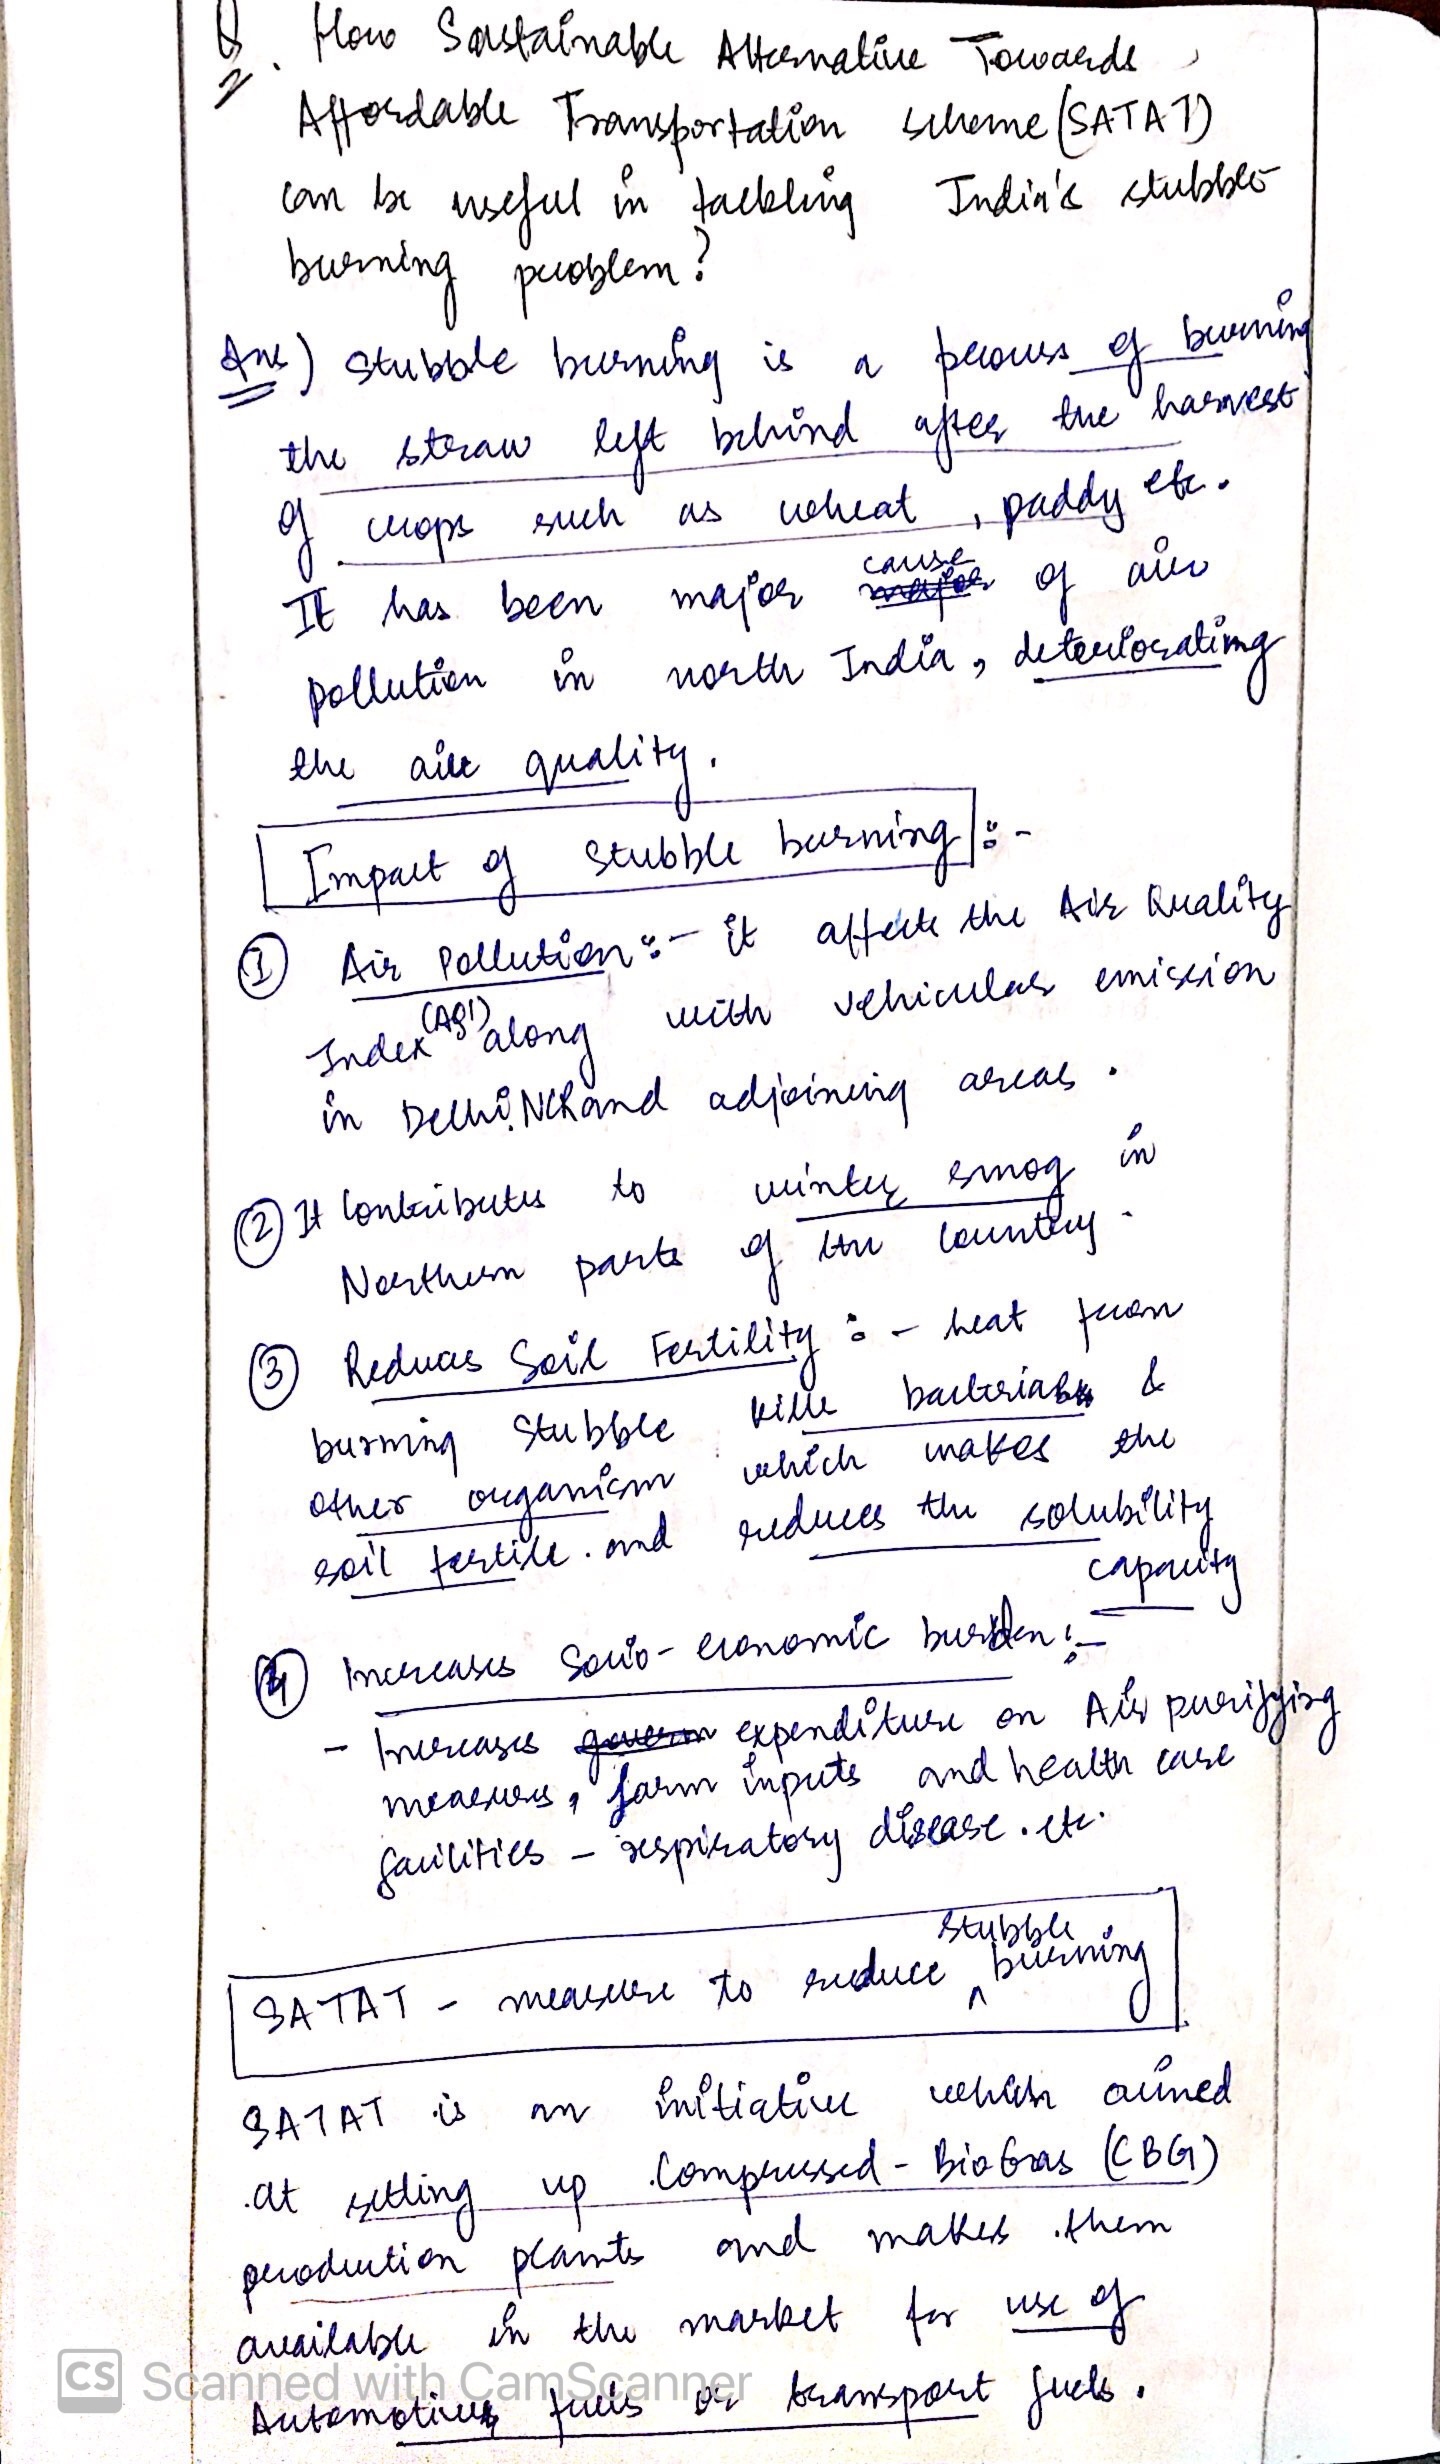 Q. How Sustainable Alternative Towards
Affordable Transportation scheme (SATAT)
can be useful in tackling India's stubble
burning problem?
Ans) Stubble burning is a process of burning
the straw left behind after the harvest
of crops such as wheat, paddy etc.
It has been major cause of air
pollution in north India, deteriorating
the air quality.
Impact of Stubble burning :-
① Air Pollution :- it affects the Air Quality
Index (AQI) along with vehicular emission
in Delhi, NCR and adjoining areas.
② It contributes to winter smog in
Northern parts of the country.
③ Reduces Soil Fertility :- heat from
burning stubble kills bacterias &
other organism which makes the
soil fertile. and reduces the solubility
capacity
④ Increases Socio-economic burden :-
- Increases expenditure on Air purifying
measures, farm inputs and health care
facilities - respiratory disease. etc.
SATAT - measure to reduce stubble burning
SATAT is an initiative which aimed
at setting up Compressed - BioGas (CBG)
production plants and makes them
available in the market for use of
Automotive fuels or transport fuels.
CS Scanned with CamScanner